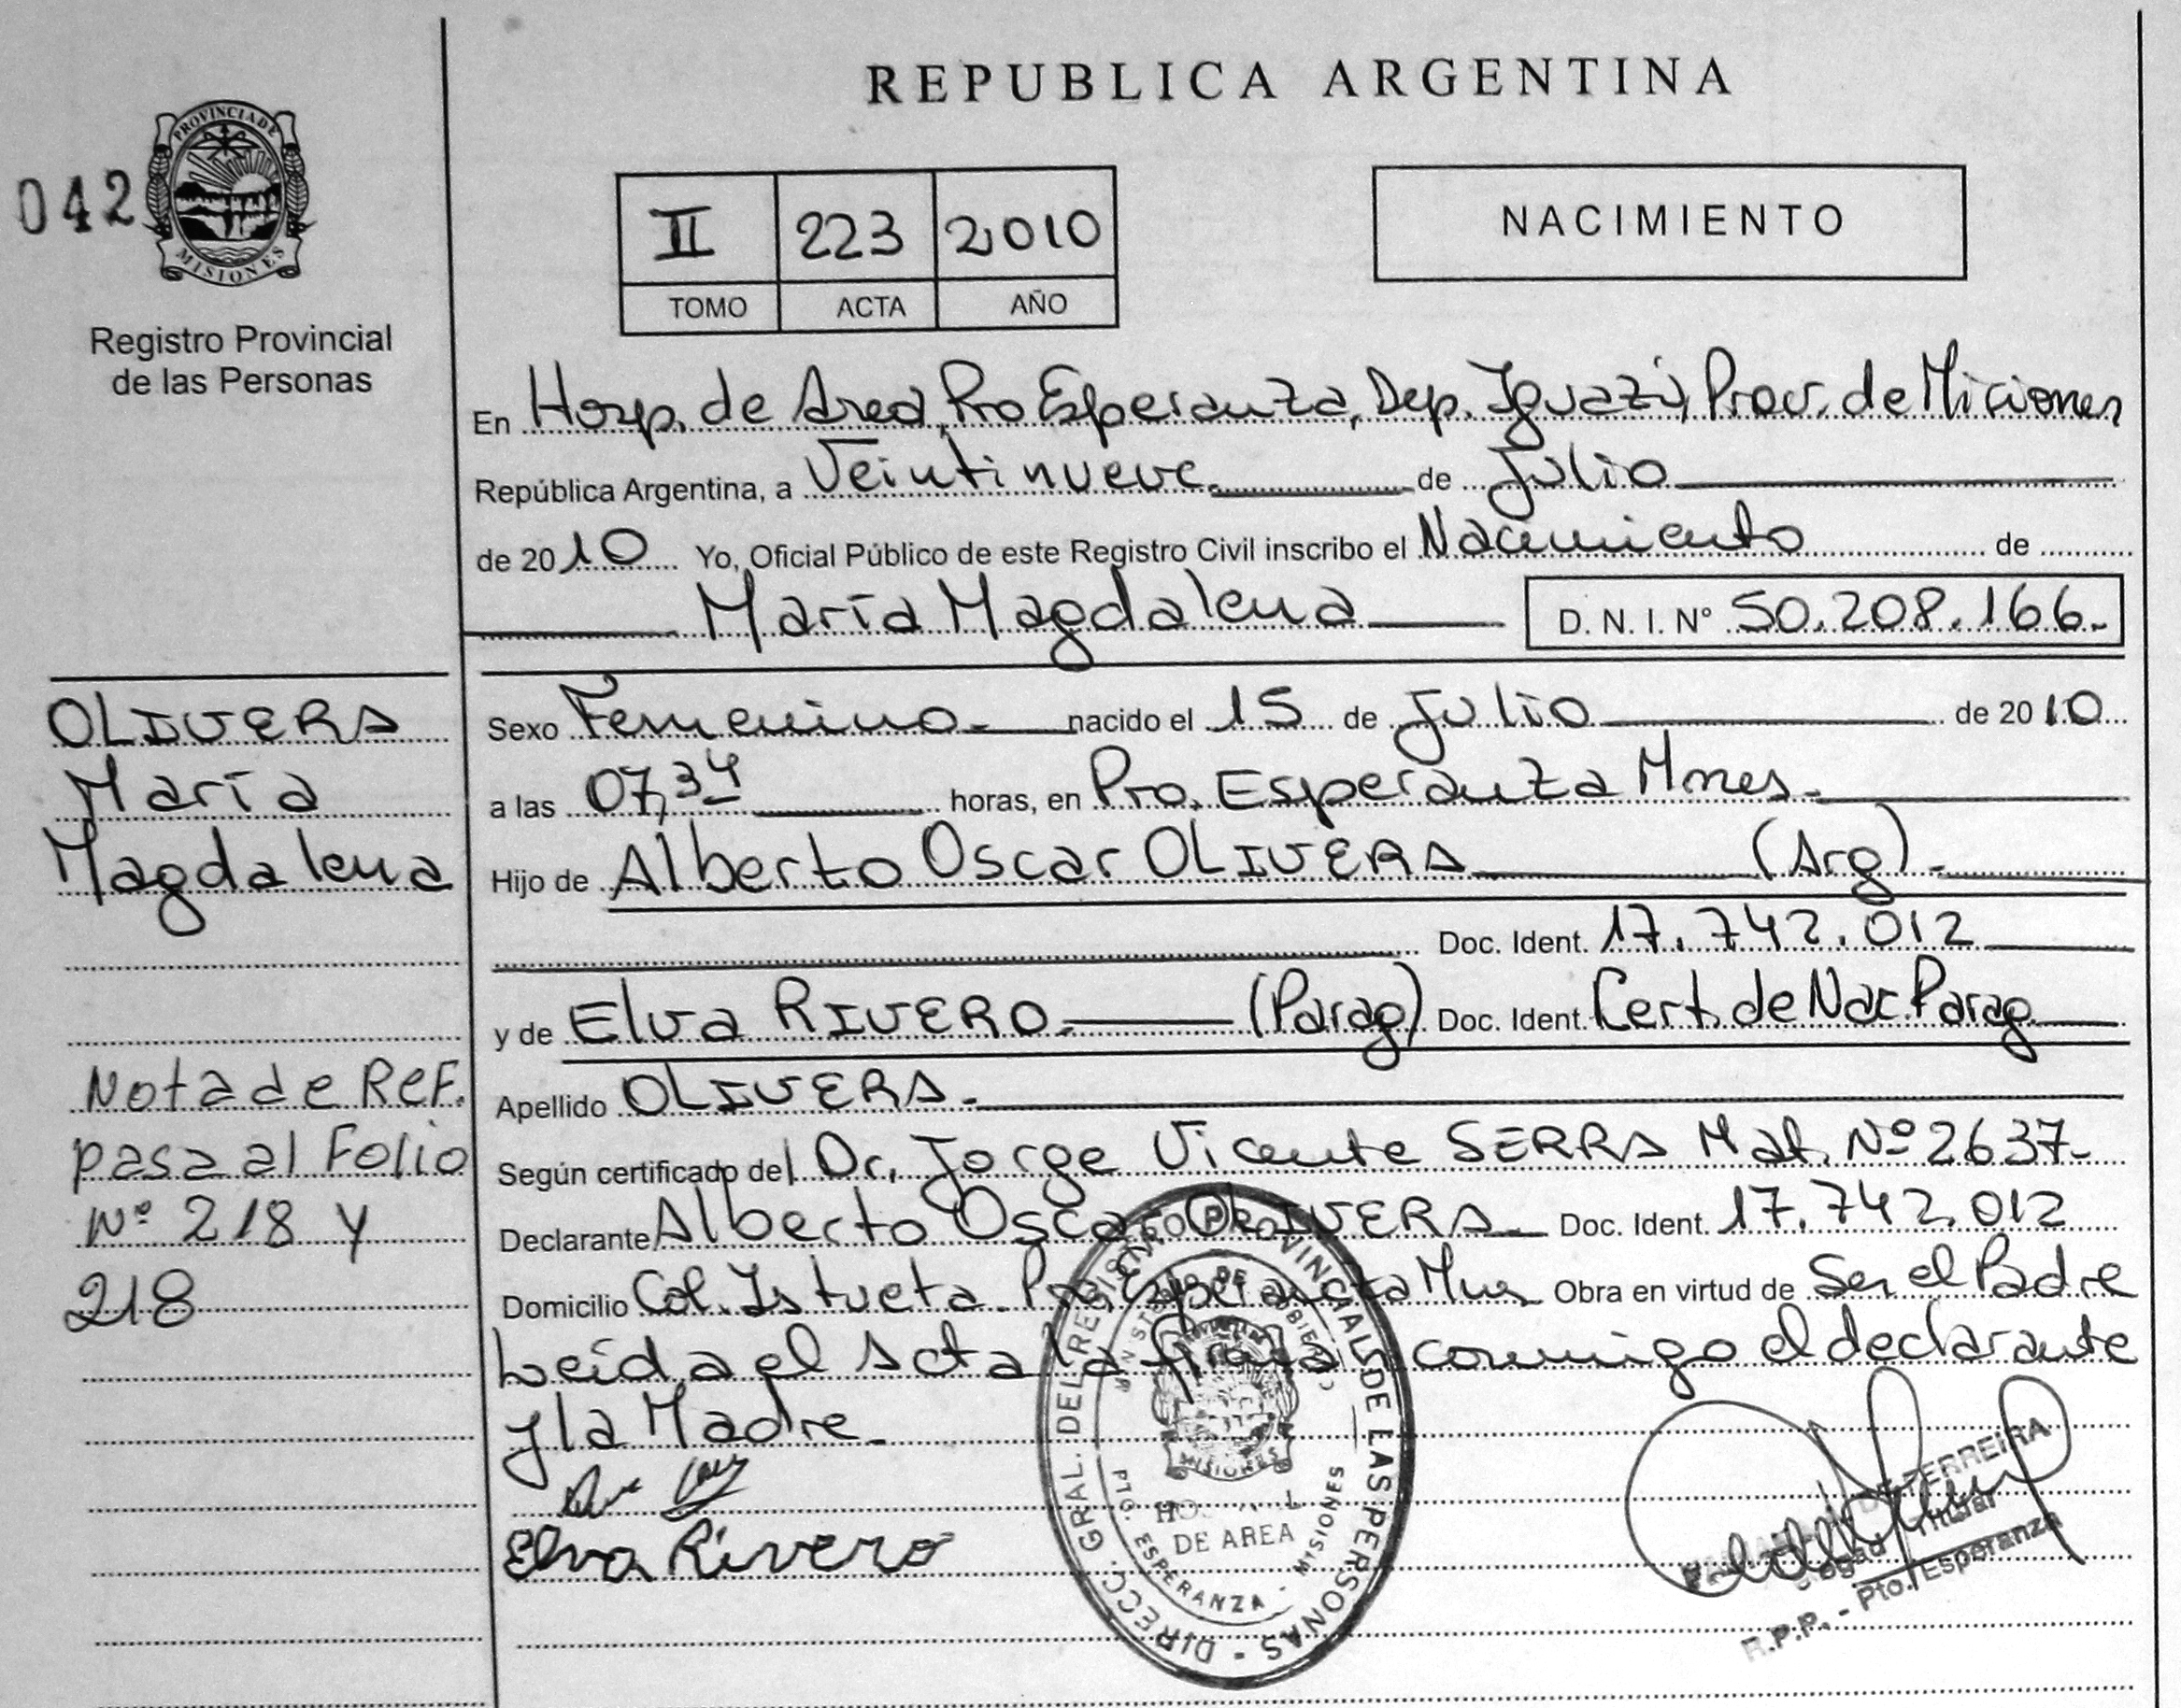 REPUBLICA ARGENTINA
042
PROVINCIA DE
MISIONES
Registro Provincial
de las Personas
II 223 2010
TOMO ACTA AÑO
NACIMIENTO
En Hosp. de Area, Pto Esperanza, Dep. Iguazú, Prov. de Misiones
República Argentina, a Veintinueve de Julio
de 2010 Yo, Oficial Público de este Registro Civil inscribo el Nacimiento de
María Magdalena D. N. I. Nº 50.208.166.-
OLIVERA
María
Magdalena
Sexo Femenino.- nacido el 15 de Julio de 2010
a las 07,34 horas, en Pto. Esperanza Mnes.-
Hijo de Alberto Oscar OLIVERA (Arg).-
Doc. Ident. 17.742.012
y de Elva RIVERO.- (Parag) Doc. Ident. Cert. de Nac. Parag.
Apellido OLIVERA.-
Según certificado del Dr. Jorge Vicente SERRA Mat. Nº 2637.-
Declarante Alberto Oscar OLIVERA.- Doc. Ident. 17.742.012
Domicilio Col. Istueta Pto Esperanza Mnes Obra en virtud de Ser el Padre
Leida el Acta la firma conmigo el declarante
y la Madre.-
Elva Rivero
Nota de Ref.
pasa al Folio
Nº 218 y
218
DIRECC. GRAL. DEL REGISTRO PROVINCIAL DE LAS PERSONAS
MINISTERIO DE GOBIERNO
MISIONES
DE AREA
PTO. ESPERANZA - MISIONES
FERREIRA
Titular
R.P.P. - Pto. Esperanza